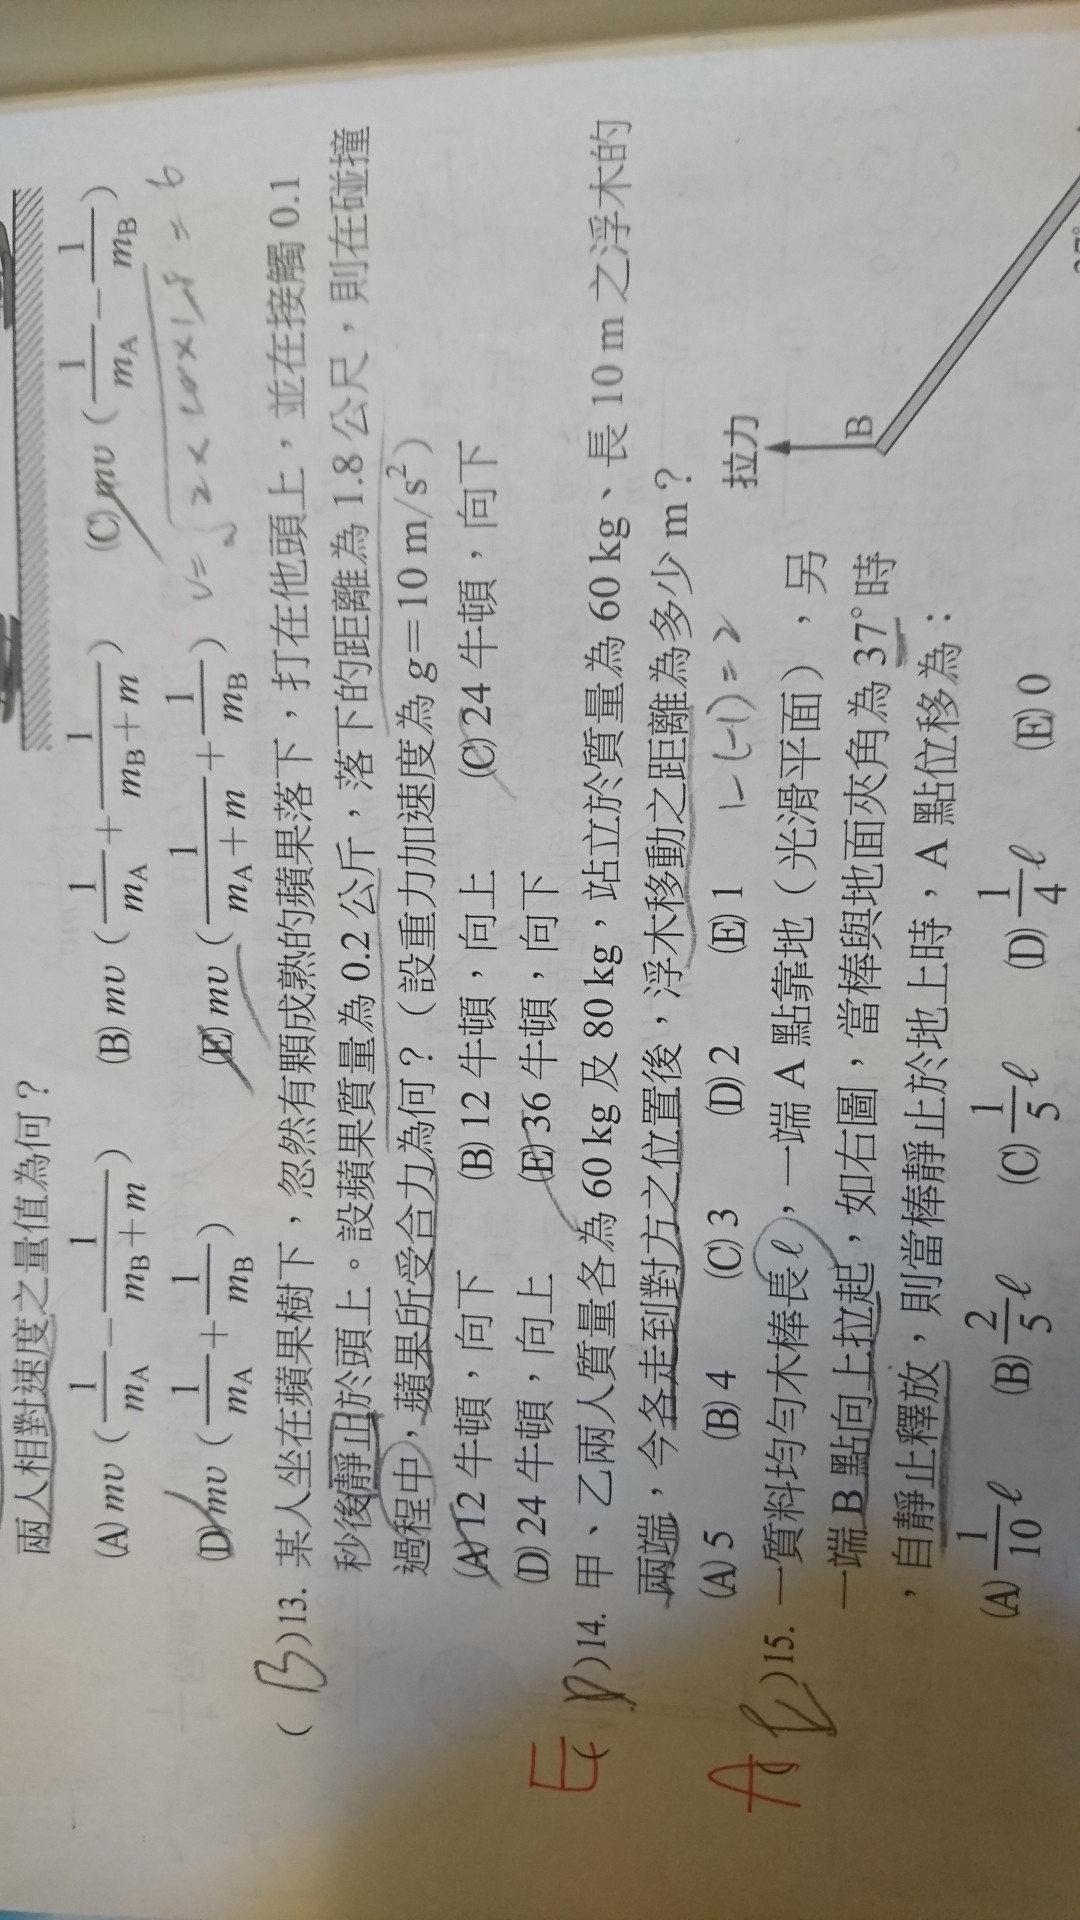 兩人相對速度之量值為何？
(A) mv ( 1/mA − 1/(mB＋m) ) (B) mv ( 1/mA ＋ 1/(mB＋m) ) (C) mv ( 1/mA − 1/mB )
(D) mv ( 1/mA ＋ 1/mB ) (E) mv ( 1/(mA＋m) ＋ 1/mB )
v = √2×10×1.8 = 6
( B )13. 某人坐在蘋果樹下，忽然有顆成熟的蘋果落下，打在他頭上，並在接觸 0.1
秒後靜止於頭上。設蘋果質量為 0.2 公斤，落下的距離為 1.8 公尺，則在碰撞
過程中，蘋果所受合力為何？（設重力加速度為 g＝10 m/s²）
(A) 12 牛頓，向下 (B) 12 牛頓，向上 (C) 24 牛頓，向下
(D) 24 牛頓，向上 (E) 36 牛頓，向下
E
( D )14. 甲、乙兩人質量各為 60 kg 及 80 kg，站立於質量為 60 kg、長 10 m 之浮木的
兩端，今各走到對方之位置後，浮木移動之距離為多少 m？
(A) 5 (B) 4 (C) 3 (D) 2 (E) 1 1-(-1) = 2
A
( )15. 一質料均勻木棒長 ℓ，一端 A 點靠地（光滑平面），另
一端 B 點向上拉起，如右圖，當棒與地面夾角為 37° 時
，自靜止釋放，則當棒靜止於地上時，A 點位移為：
(A) 1/10 ℓ (B) 2/5 ℓ (C) 1/5 ℓ (D) 1/4 ℓ (E) 0
拉力
B